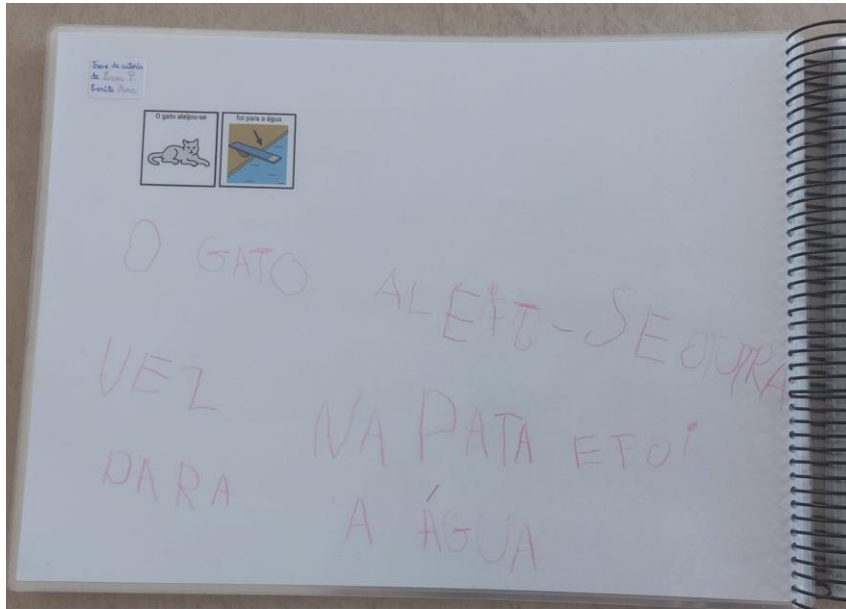 Frase da autoria
de Lucas P.
Escrita Ana
O gato aleijou-se
foi para a água
O GATO ALEIT-SE OUTRA
VEZ NA PATA E FOI
PARA A ÁGUA